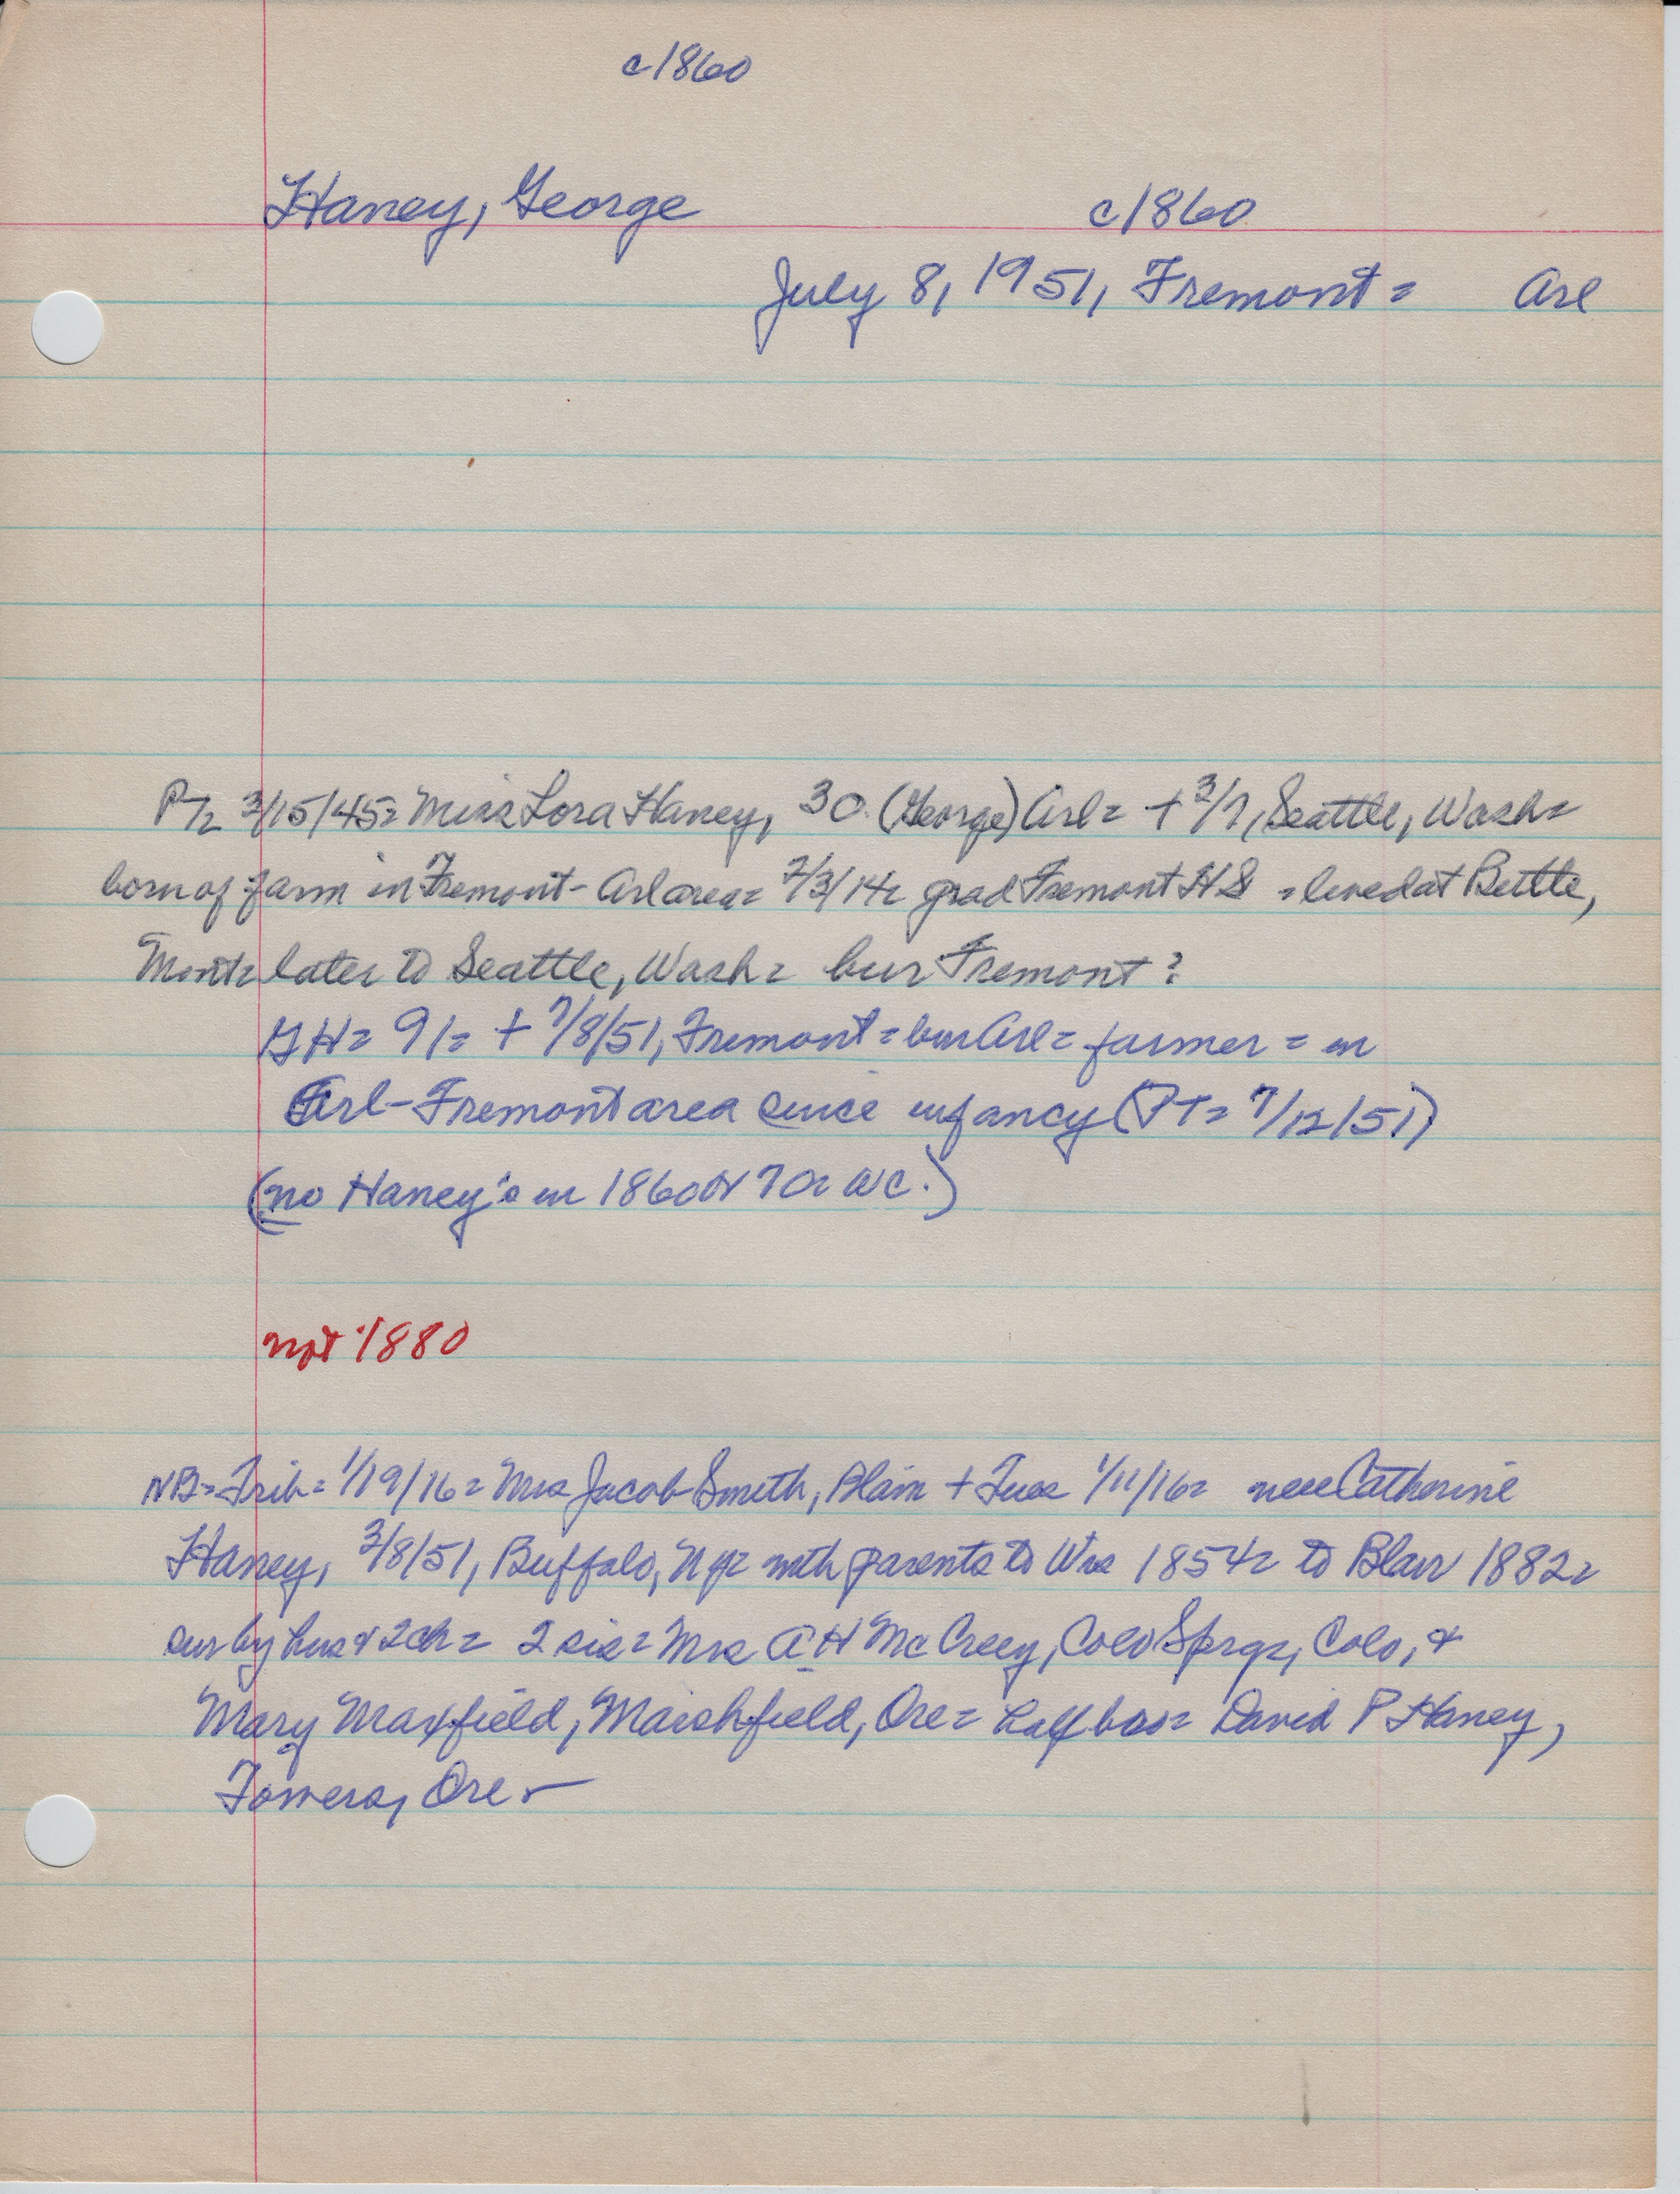 c1860
Haney, George c1860
July 8, 1951, Fremont = Arl
PT= 3/15/45= Miss Lora Haney, 30 (George) Arl= + 3/7, Seattle, Wash=
born of farm in Fremont-Arl area= 2/3/14= grad Fremont HS = lived at Buttte,
Mont= later to Seattle, Wash= bur Fremont?
GH= 91= + 7/8/51, Fremont = bur Arl = farmer = in
Arl-Fremont area since infancy (PT= 7/12/51)
(no Haney's in 1860 or 70= WC.)
not 1880
NB= Trib= 1/19/16= Mrs Jacob Smith, Blair + Tues 1/11/16= nee Catherine
Haney, 3/8/51, Buffalo, NY= with parents to Wis 1854= to Blair 1882=
sur by hus & 2ch= 2 sis= Mrs A H McCreey, Colo Sprgs, Colo, &
Mary Maxfield, Marshfield, Ore= half bro= David P Haney,
Ore.